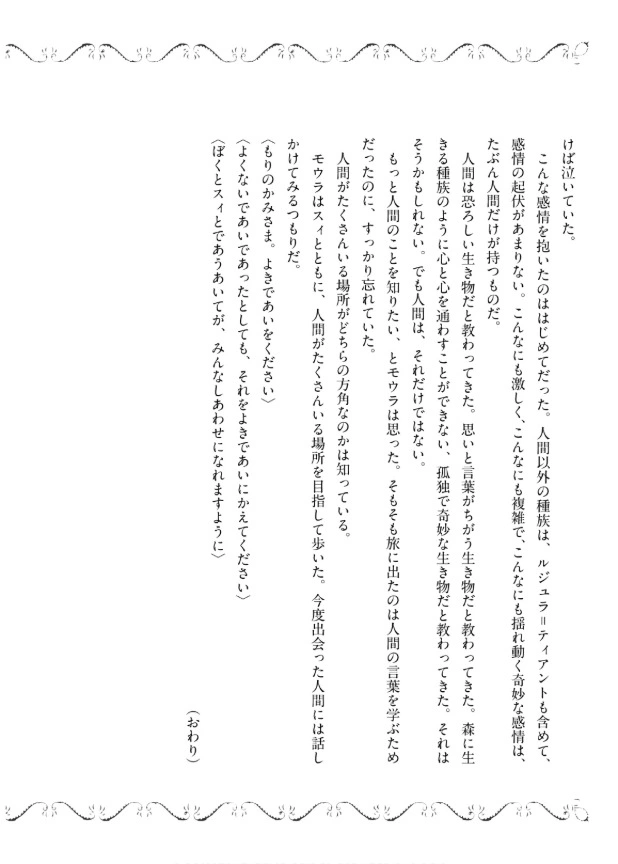 けば泣いていた。
　こんな感情を抱いたのははじめてだった。人間以外の種族は、ルジュラ＝ティアントも含めて、
感情の起伏があまりない。こんなにも激しく、こんなにも複雑で、こんなにも揺れ動く奇妙な感情は、
たぶん人間だけが持つものだ。
　人間は恐ろしい生き物だと教わってきた。思いと言葉がちがう生き物だと教わってきた。森に生
きる種族のように心と心を通わすことができない、孤独で奇妙な生き物だと教わってきた。それは
そうかもしれない。でも人間は、それだけではない。
　もっと人間のことを知りたい、とモウラは思った。そもそも旅に出たのは人間の言葉を学ぶため
だったのに、すっかり忘れていた。
　人間がたくさんいる場所がどちらの方角なのかは知っている。
　モウラはスィとともに、人間がたくさんいる場所を目指して歩いた。今度出会った人間には話し
かけてみるつもりだ。
〈もりのかみさま。よきであいをください〉
〈よくないであいであったとしても、それをよきであいにかえてください〉
〈ぼくとスィとであうあいてが、みんなしあわせになれますように〉
（おわり）